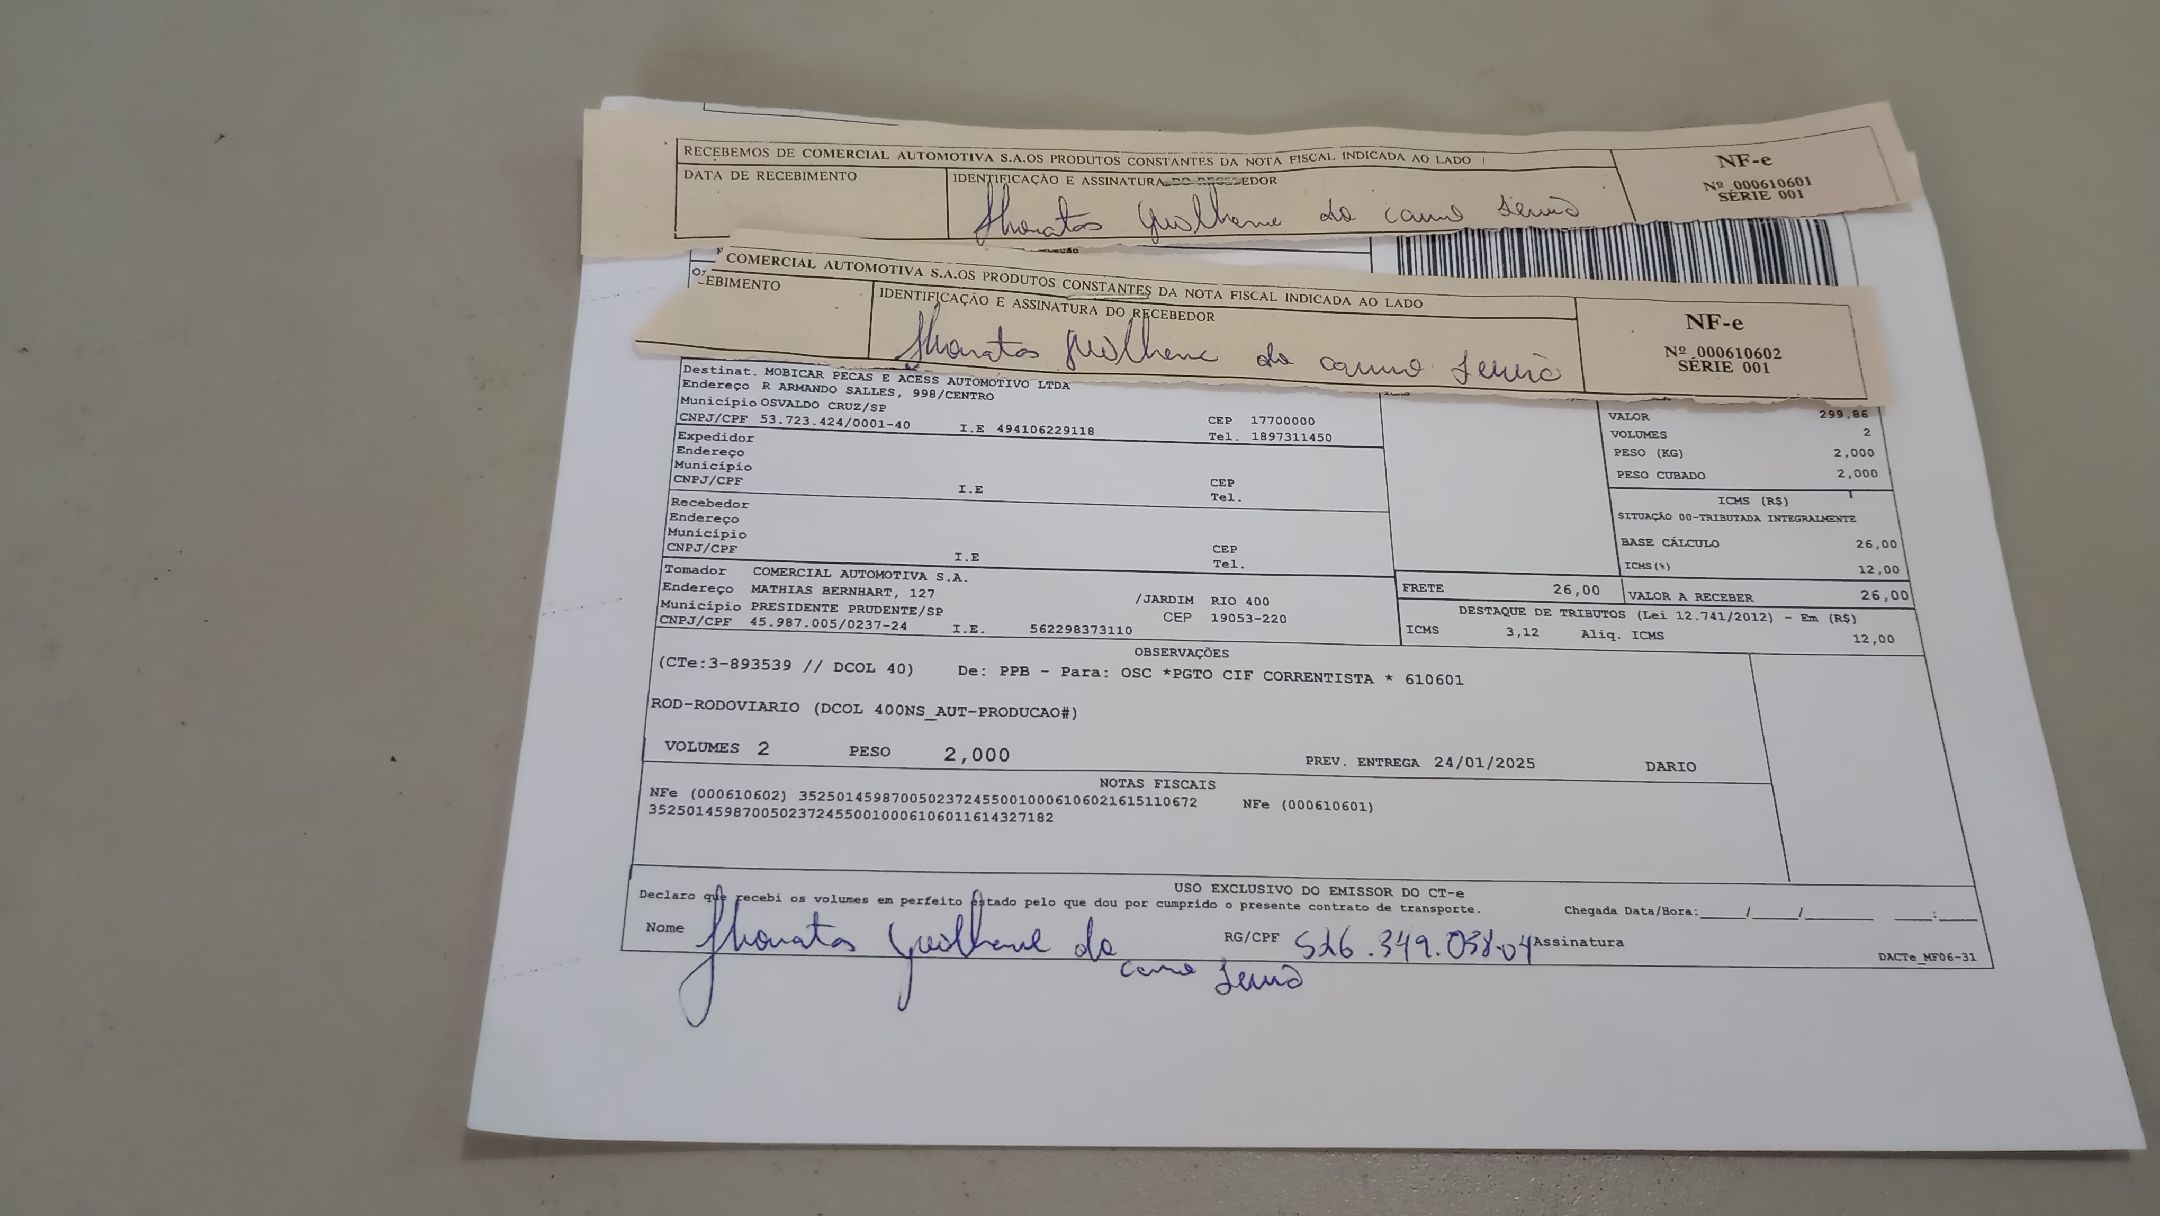 RECEBEMOS DE COMERCIAL AUTOMOTIVA S.A.OS PRODUTOS CONSTANTES DA NOTA FISCAL INDICADA AO LADO
DATA DE RECEBIMENTO
IDENTIFICAÇÃO E ASSINATURA DO RECEBEDOR
Jhonatas Guilherme do
NF-e
Nº 000610601
SÉRIE 001
COMERCIAL AUTOMOTIVA S.A.OS PRODUTOS CONSTANTES DA NOTA FISCAL INDICADA AO LADO
EBIMENTO
IDENTIFICAÇÃO E ASSINATURA DO RECEBEDOR
Jhonatas Guilherme do
NF-e
Nº 000610602
SÉRIE 001
Destinat. MOBICAR PECAS E ACESS AUTOMOTIVO LTDA
Endereço R ARMANDO SALLES, 998/CENTRO
Município OSVALDO CRUZ/SP CEP 17700000
CNPJ/CPF 53.723.424/0001-40 I.E 494106229118 Tel. 1897311450
Expedidor
Endereço
Município CEP
CNPJ/CPF I.E Tel.
Recebedor
Endereço
Município CEP
CNPJ/CPF I.E Tel.
Tomador COMERCIAL AUTOMOTIVA S.A.
Endereço MATHIAS BERNHART, 127 /JARDIM RIO 400
Município PRESIDENTE PRUDENTE/SP CEP 19053-220
CNPJ/CPF 45.987.005/0237-24 I.E. 562298373110
VALOR 299,86
VOLUMES 2
PESO (KG) 2,000
PESO CUBADO 2,000
ICMS (R$)
SITUAÇÃO 00-TRIBUTADA INTEGRALMENTE
BASE CÁLCULO 26,00
ICMS(%) 12,00
FRETE 26,00 VALOR A RECEBER 26,00
DESTAQUE DE TRIBUTOS (Lei 12.741/2012) - Em (R$)
ICMS 3,12 Aliq. ICMS 12,00
OBSERVAÇÕES
(CTe:3-893539 // DCOL 40) De: PPB - Para: OSC *PGTO CIF CORRENTISTA * 610601
ROD-RODOVIARIO (DCOL 400NS_AUT-PRODUCAO#)
VOLUMES 2 PESO 2,000 PREV. ENTREGA 24/01/2025 DARIO
NOTAS FISCAIS
NFe (000610602) 35250145987005023724550010006106021615110672 NFe (000610601)
35250145987005023724550010006106011614327182
USO EXCLUSIVO DO EMISSOR DO CT-e
Declaro que recebi os volumes em perfeito estado pelo que dou por cumprido o presente contrato de transporte. Chegada Data/Hora:_____/_____/________ _____:_____
Nome Jhonatas Guilherme do RG/CPF 526.349.058-04 Assinatura
DACTe_MF06-31